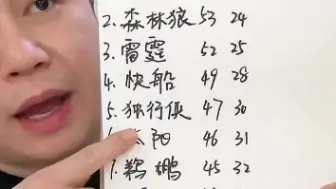 2. 森林狼 53 24
3. 雷霆 52 25
4. 快船 49 28
5. 独行侠 47 30
阳 46 31
7. 鹈鹕 45 32